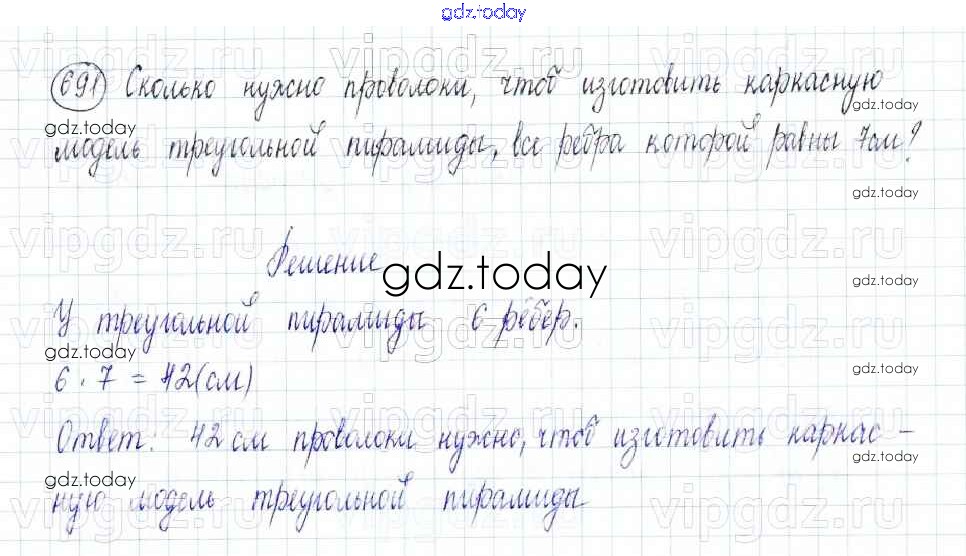 gdz.today
691 Сколько нужно проволоки, чтоб изготовить каркасную
gdz.today
gdz.today
модель треугольной пирамиды, все рёбра которой равны 7см?
gdz.today
Решение
gdz.today
gdz.today
У треугольной пирамиды 6 рёбер.
gdz.today
gdz.today
6 · 7 = 42(см)
Ответ: 42 см проволоки нужно, чтоб изготовить каркас-
gdz.today
gdz.today
ную модель треугольной пирамиды
vipgdz.ru vipgdz.ru vipgdz.ru